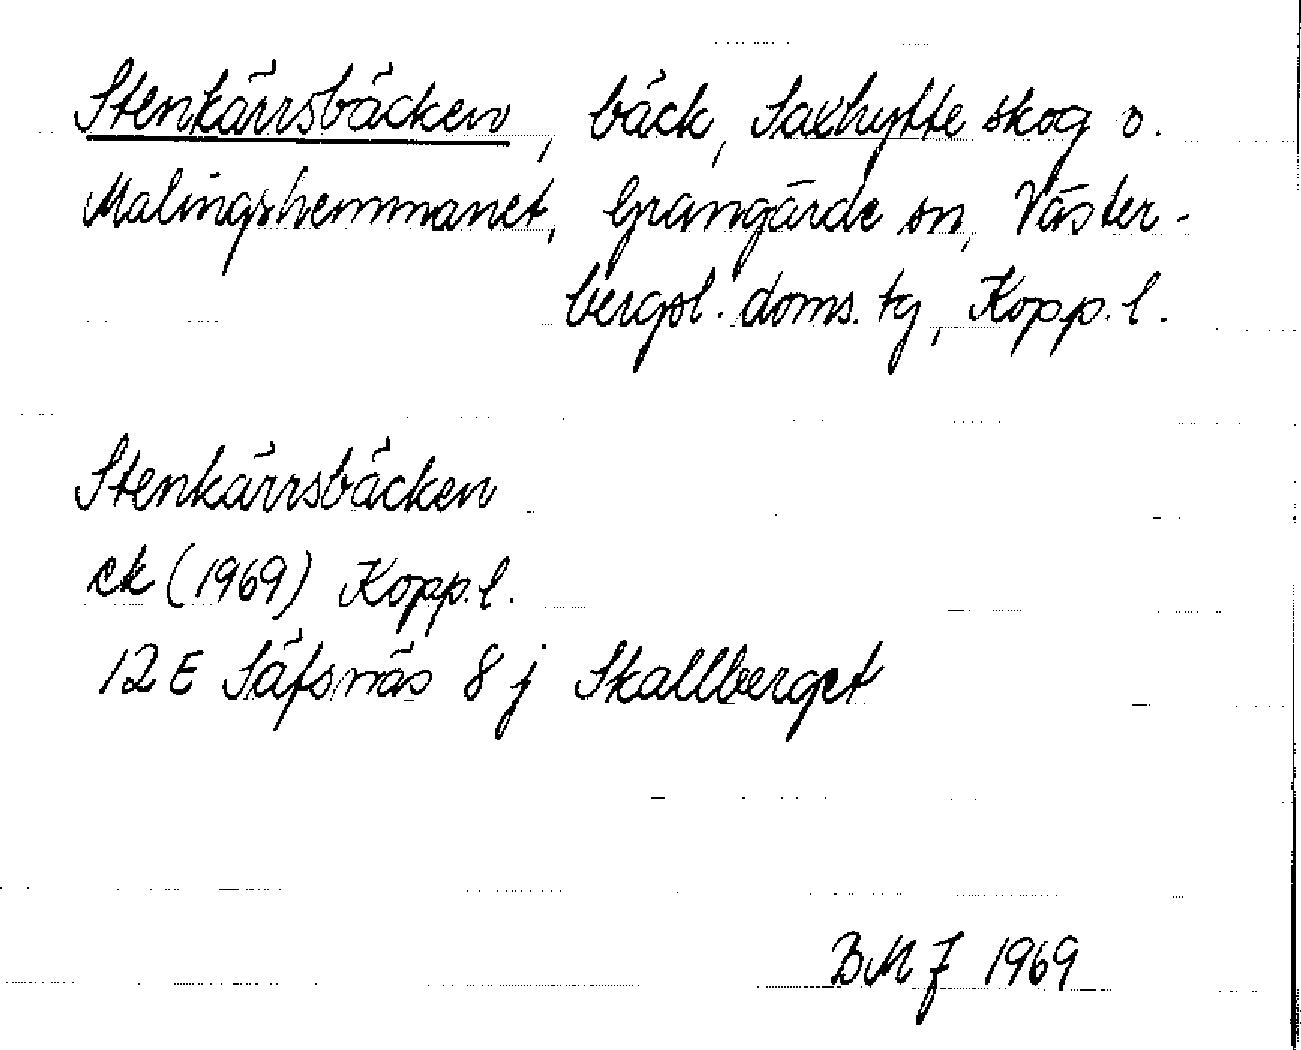 Stenkärrsbäcken, bäck, Saxhytte skog o.
Malingshemmanet, Grangärde sn, Väster-
bergsl. doms. tg, Kopp. l.
Stenkärrsbäcken
ek (1969) Kopp. l.
12 E Säfsnäs 8 j Skallberget
BMJ 1969